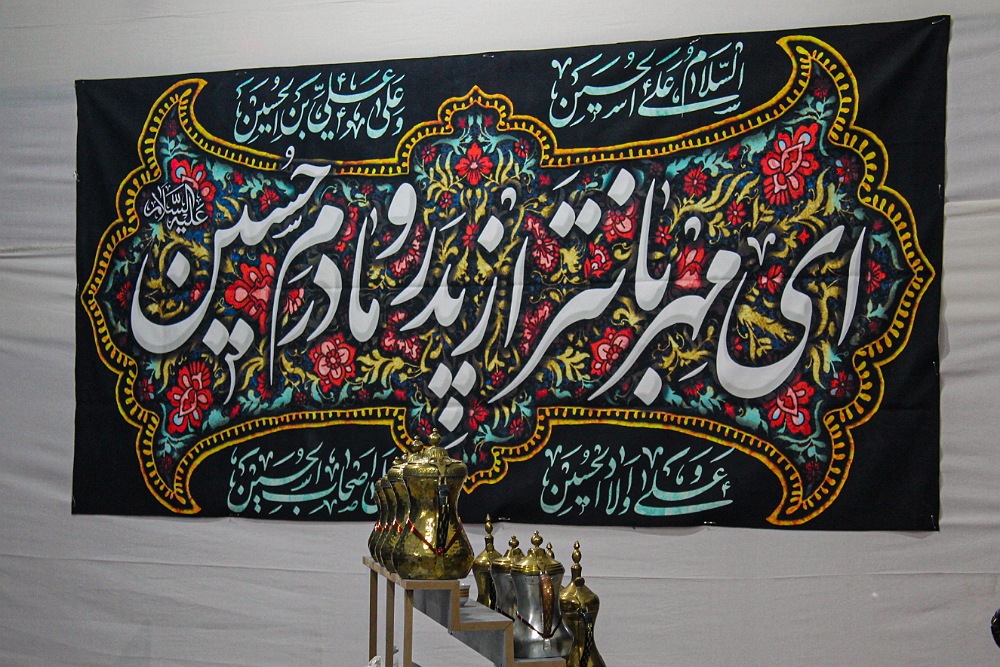 السلام علی الحسین
وعلی علی بن الحسین
ای مهربانتر از پدر و مادرم حسین
علیه السلام
وعلی اولاد الحسین
اصحاب الحسین